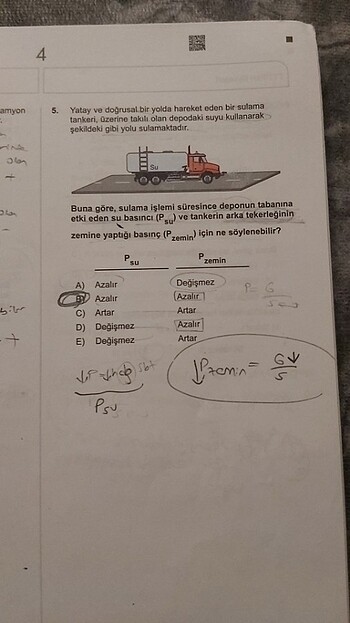 4
amyon
5. Yatay ve doğrusal bir yolda hareket eden bir sulama
tankeri, üzerine takılı olan depodaki suyu kullanarak
şekildeki gibi yolu sulamaktadır.
Su
Buna göre, sulama işlemi süresince deponun tabanına
etki eden su basıncı (Psu) ve tankerin arka tekerleğinin
zemine yaptığı basınç (Pzemin) için ne söylenebilir?
Psu Pzemin
A) Azalır Değişmez
B) Azalır Azalır
C) Artar Artar
D) Değişmez Azalır
E) Değişmez Artar
P = G
↓Pzemin = G↓
S
Psu